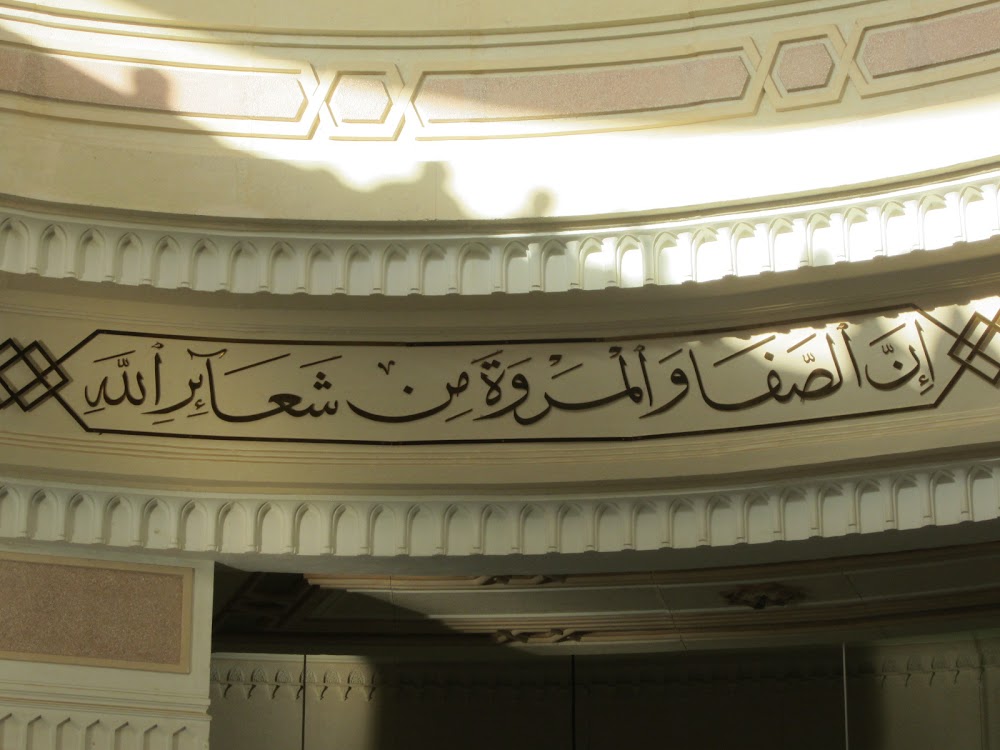 إِنَّ ٱلصَّفَا وَٱلْمَرْوَةَ مِن شَعَآئِرِ ٱللَّهِ